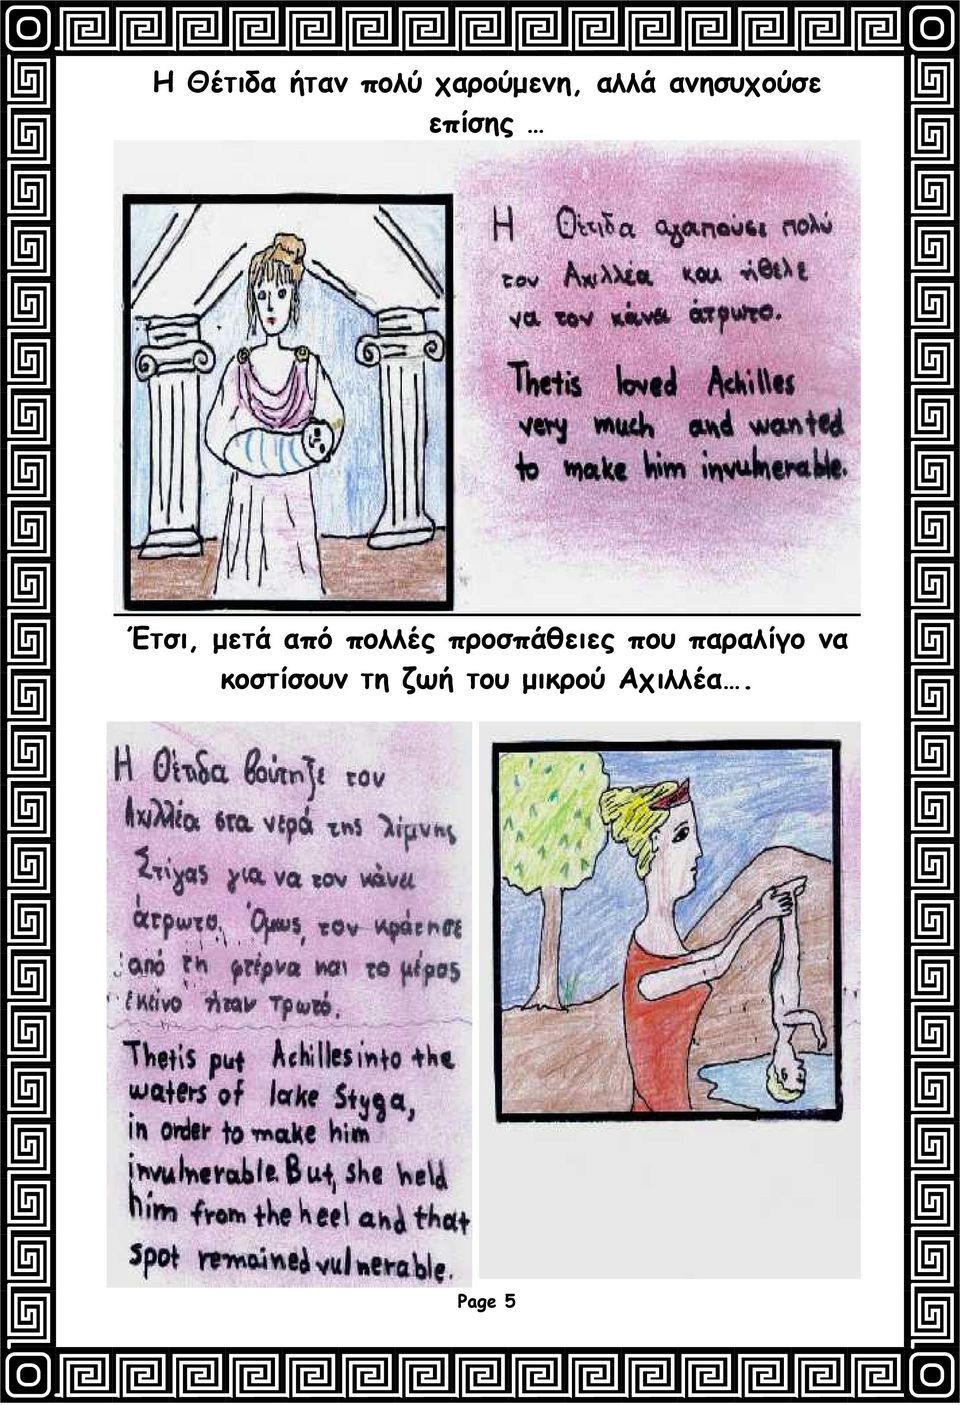 Η Θέτιδα ήταν πολύ χαρούμενη, αλλά ανησυχούσε
επίσης …
Η Θέτιδα αγαπούσε πολύ
τον Αχιλλέα και ήθελε
να τον κάνει άτρωτο.
Thetis loved Achilles
very much and wanted
to make him invulnerable.
Έτσι, μετά από πολλές προσπάθειες που παραλίγο να
κοστίσουν τη ζωή του μικρού Αχιλλέα….
Η Θέτιδα βούτηξε τον
Αχιλλέα στα νερά της λίμνης
Στίγας για να τον κάνει
άτρωτο. Όμως, τον κράτησε
από τη φτέρνα και το μέρος
εκείνο ήταν τρωτό.
Thetis put Achilles into the
waters of lake Styga,
in order to make him
invulnerable. But, she held
him from the heel and that
spot remained vulnerable.
Page 5